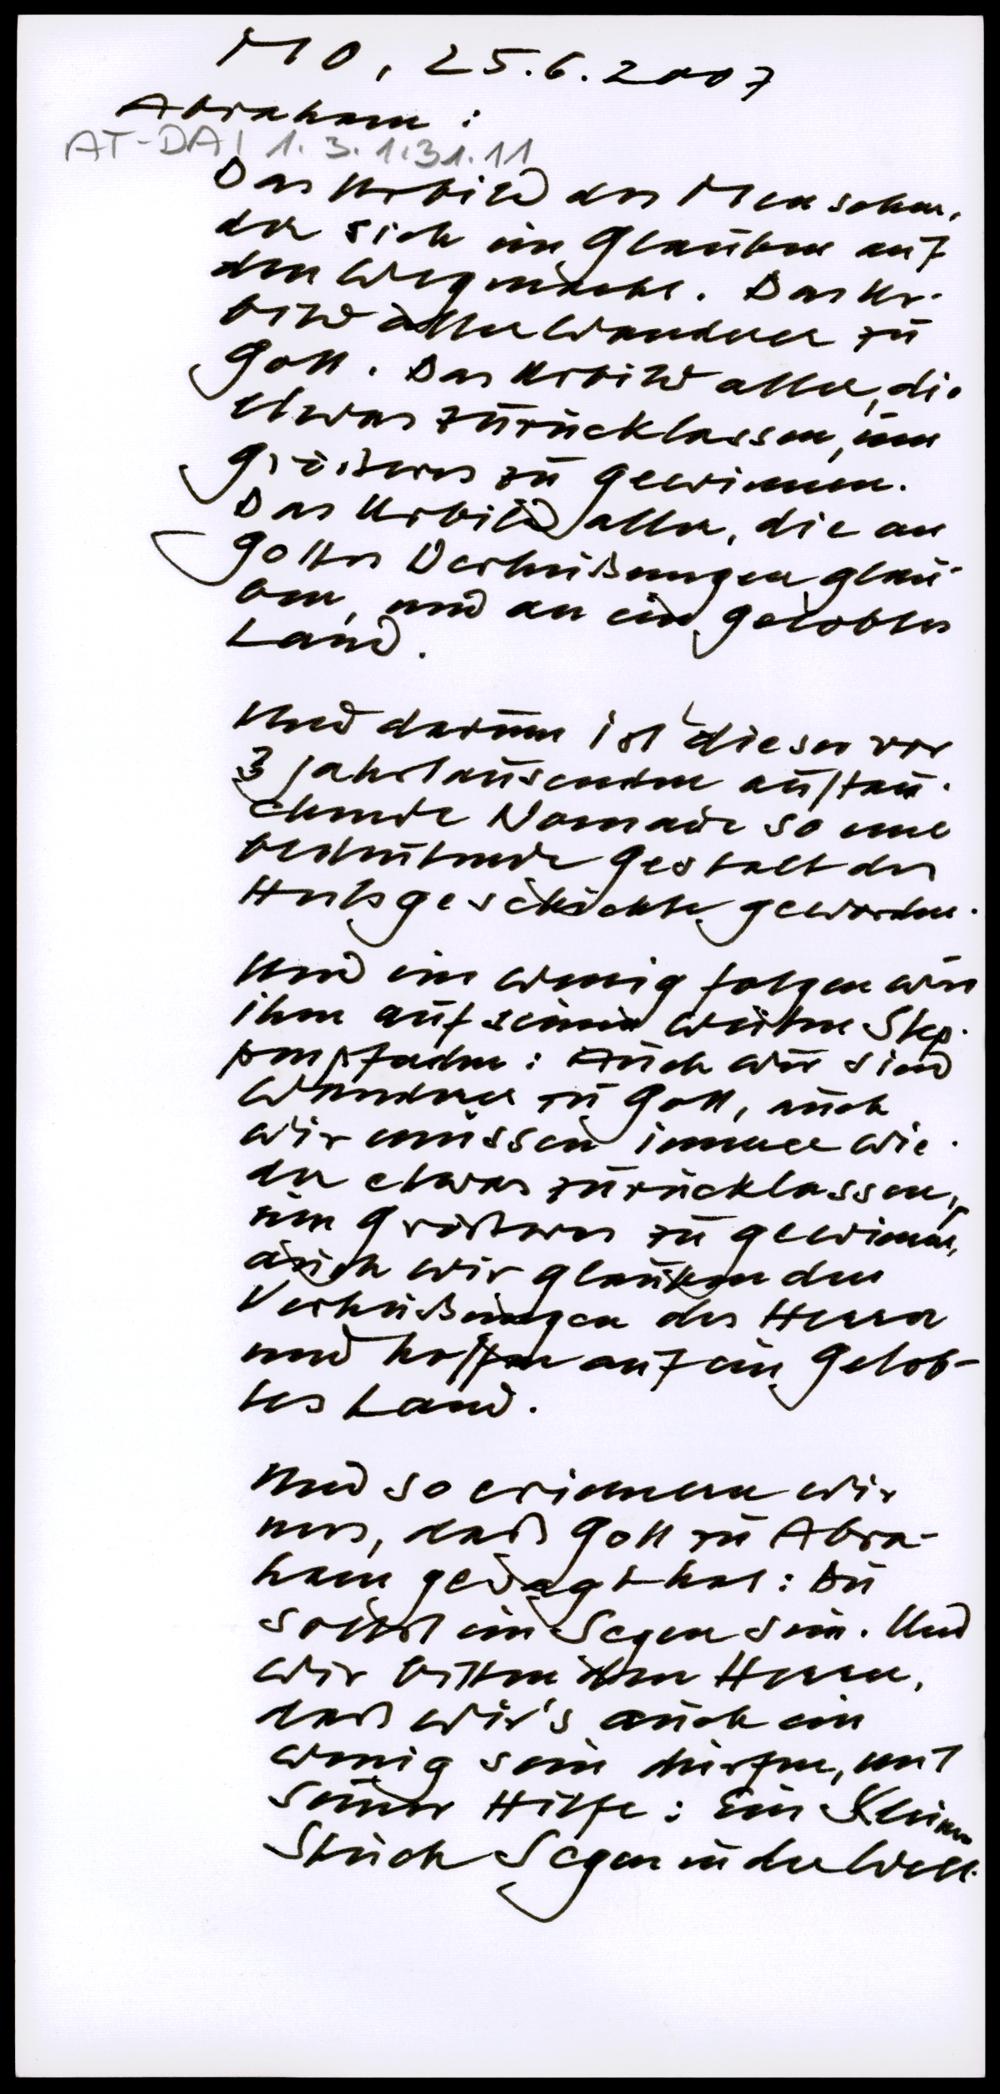 MO, 25.6.2007
Abraham:
AT-DAI 1.3.1.31.11
Das Urbild des Menschen,
der sich im Glauben auf
den Weg macht. Das Ur-
bild aller Wanderer zu
Gott. Das Urbild aller, die
etwas zurücklassen, um
Größeres zu gewinnen.
Das Urbild aller, die an
Gottes Verheißungen glau-
ben, und an ein gelobtes
Land.
Und darum ist dieser vor
3 Jahrtausenden auftau-
chende Nomade so eine
bedeutende Gestalt der
Heilsgeschichte geworden.
Und ein wenig folgen wir
ihm auf seinen weiten Step-
penpfaden: Auch wir sind
Wanderer zu Gott, auch
wir müssen immer wie-
der etwas zurücklassen,
um Größeres zu gewinnen,
auch wir glauben den
Verheißungen des Herrn
und hoffen auf ein Gelob-
tes Land.
Und so erinnern wir
uns, daß Gott zu Abra-
ham gesagt hat: Du
sollst ein Segen sein. Und
wir bitten den Herrn,
daß wir's auch ein
wenig sein dürfen, mit
Seiner Hilfe: Ein Klein
Stück Segen in der Welt.